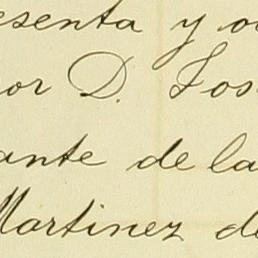 esenta y o
or D. Jos
ante de la
Martinez de